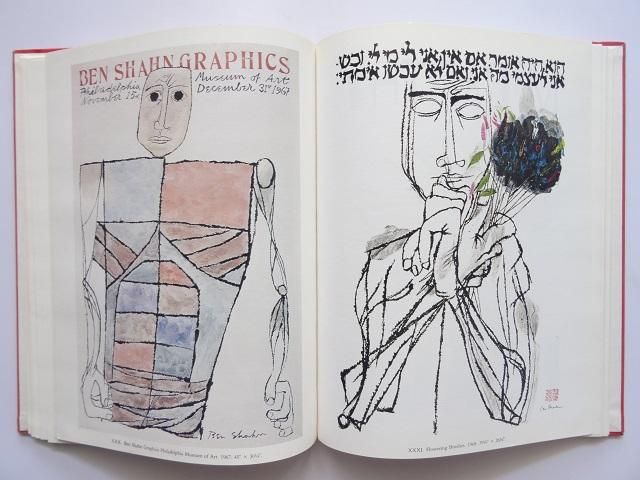 BEN SHAHN GRAPHICS
Philadelphia Museum of Art
November 15 December 31st 1967
Ben Shahn
XXX. Ben Shahn Graphics Philadelphia Museum of Art. 1967. 45" ×
הוא היה אומר אם אין אני לי מי לי וכש
אני לעצמי מה אני ואם לא עכשו אימתי:
Ben Shahn
XXXI. Flowering Brushes. 1968.